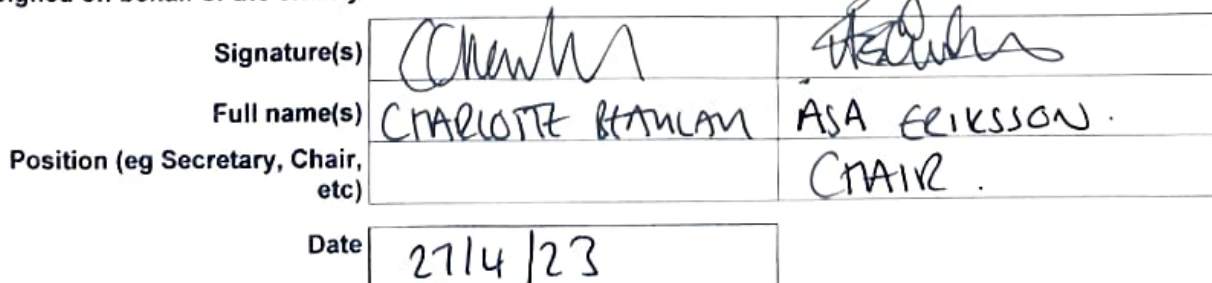 Signature(s)
Full name(s) CHARLOTTE ASA ERIKSSON.
Position (eg Secretary, Chair, CHAIR.
etc)
Date 27/4/23